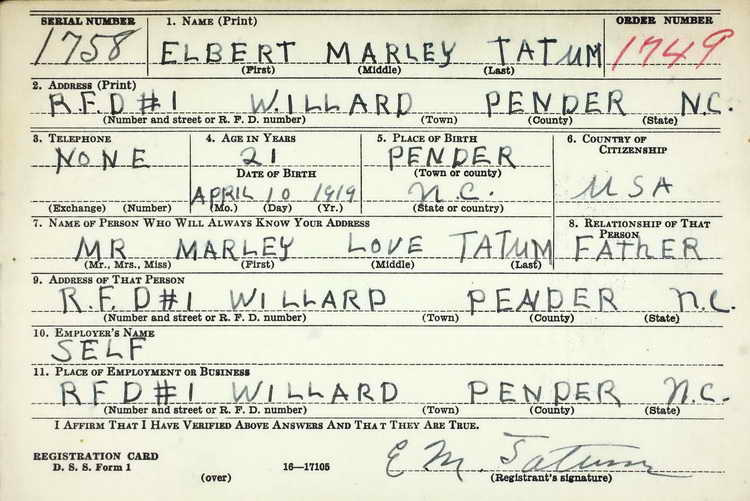 SERIAL NUMBER 1. NAME (Print) ORDER NUMBER
1758 ELBERT MARLEY TATUM 1749
(First) (Middle) (Last)
2. ADDRESS (Print)
R.F.D #1 WILLARD PENDER N.C.
(Number and street or R. F. D. number) (Town) (County) (State)
3. TELEPHONE 4. AGE IN YEARS 5. PLACE OF BIRTH 6. COUNTRY OF CITIZENSHIP
NONE 21 PENDER
DATE OF BIRTH (Town or county) USA
APRIL 10 1919 N.C.
(Exchange) (Number) (Mo.) (Day) (Yr.) (State or country)
7. NAME OF PERSON WHO WILL ALWAYS KNOW YOUR ADDRESS 8. RELATIONSHIP OF THAT PERSON
MR MARLEY LOVE TATUM FATHER
(Mr., Mrs., Miss) (First) (Middle) (Last)
9. ADDRESS OF THAT PERSON
R.F.D #1 WILLARD PENDER N.C.
(Number and street or R. F. D. number) (Town) (County) (State)
10. EMPLOYER'S NAME
SELF
11. PLACE OF EMPLOYMENT OR BUSINESS
RFD #1 WILLARD PENDER N.C.
(Number and street or R. F. D. number) (Town) (County) (State)
I AFFIRM THAT I HAVE VERIFIED ABOVE ANSWERS AND THAT THEY ARE TRUE.
REGISTRATION CARD E M. Tatum
D. S. S. Form 1 16—17105
(over) (Registrant's signature)